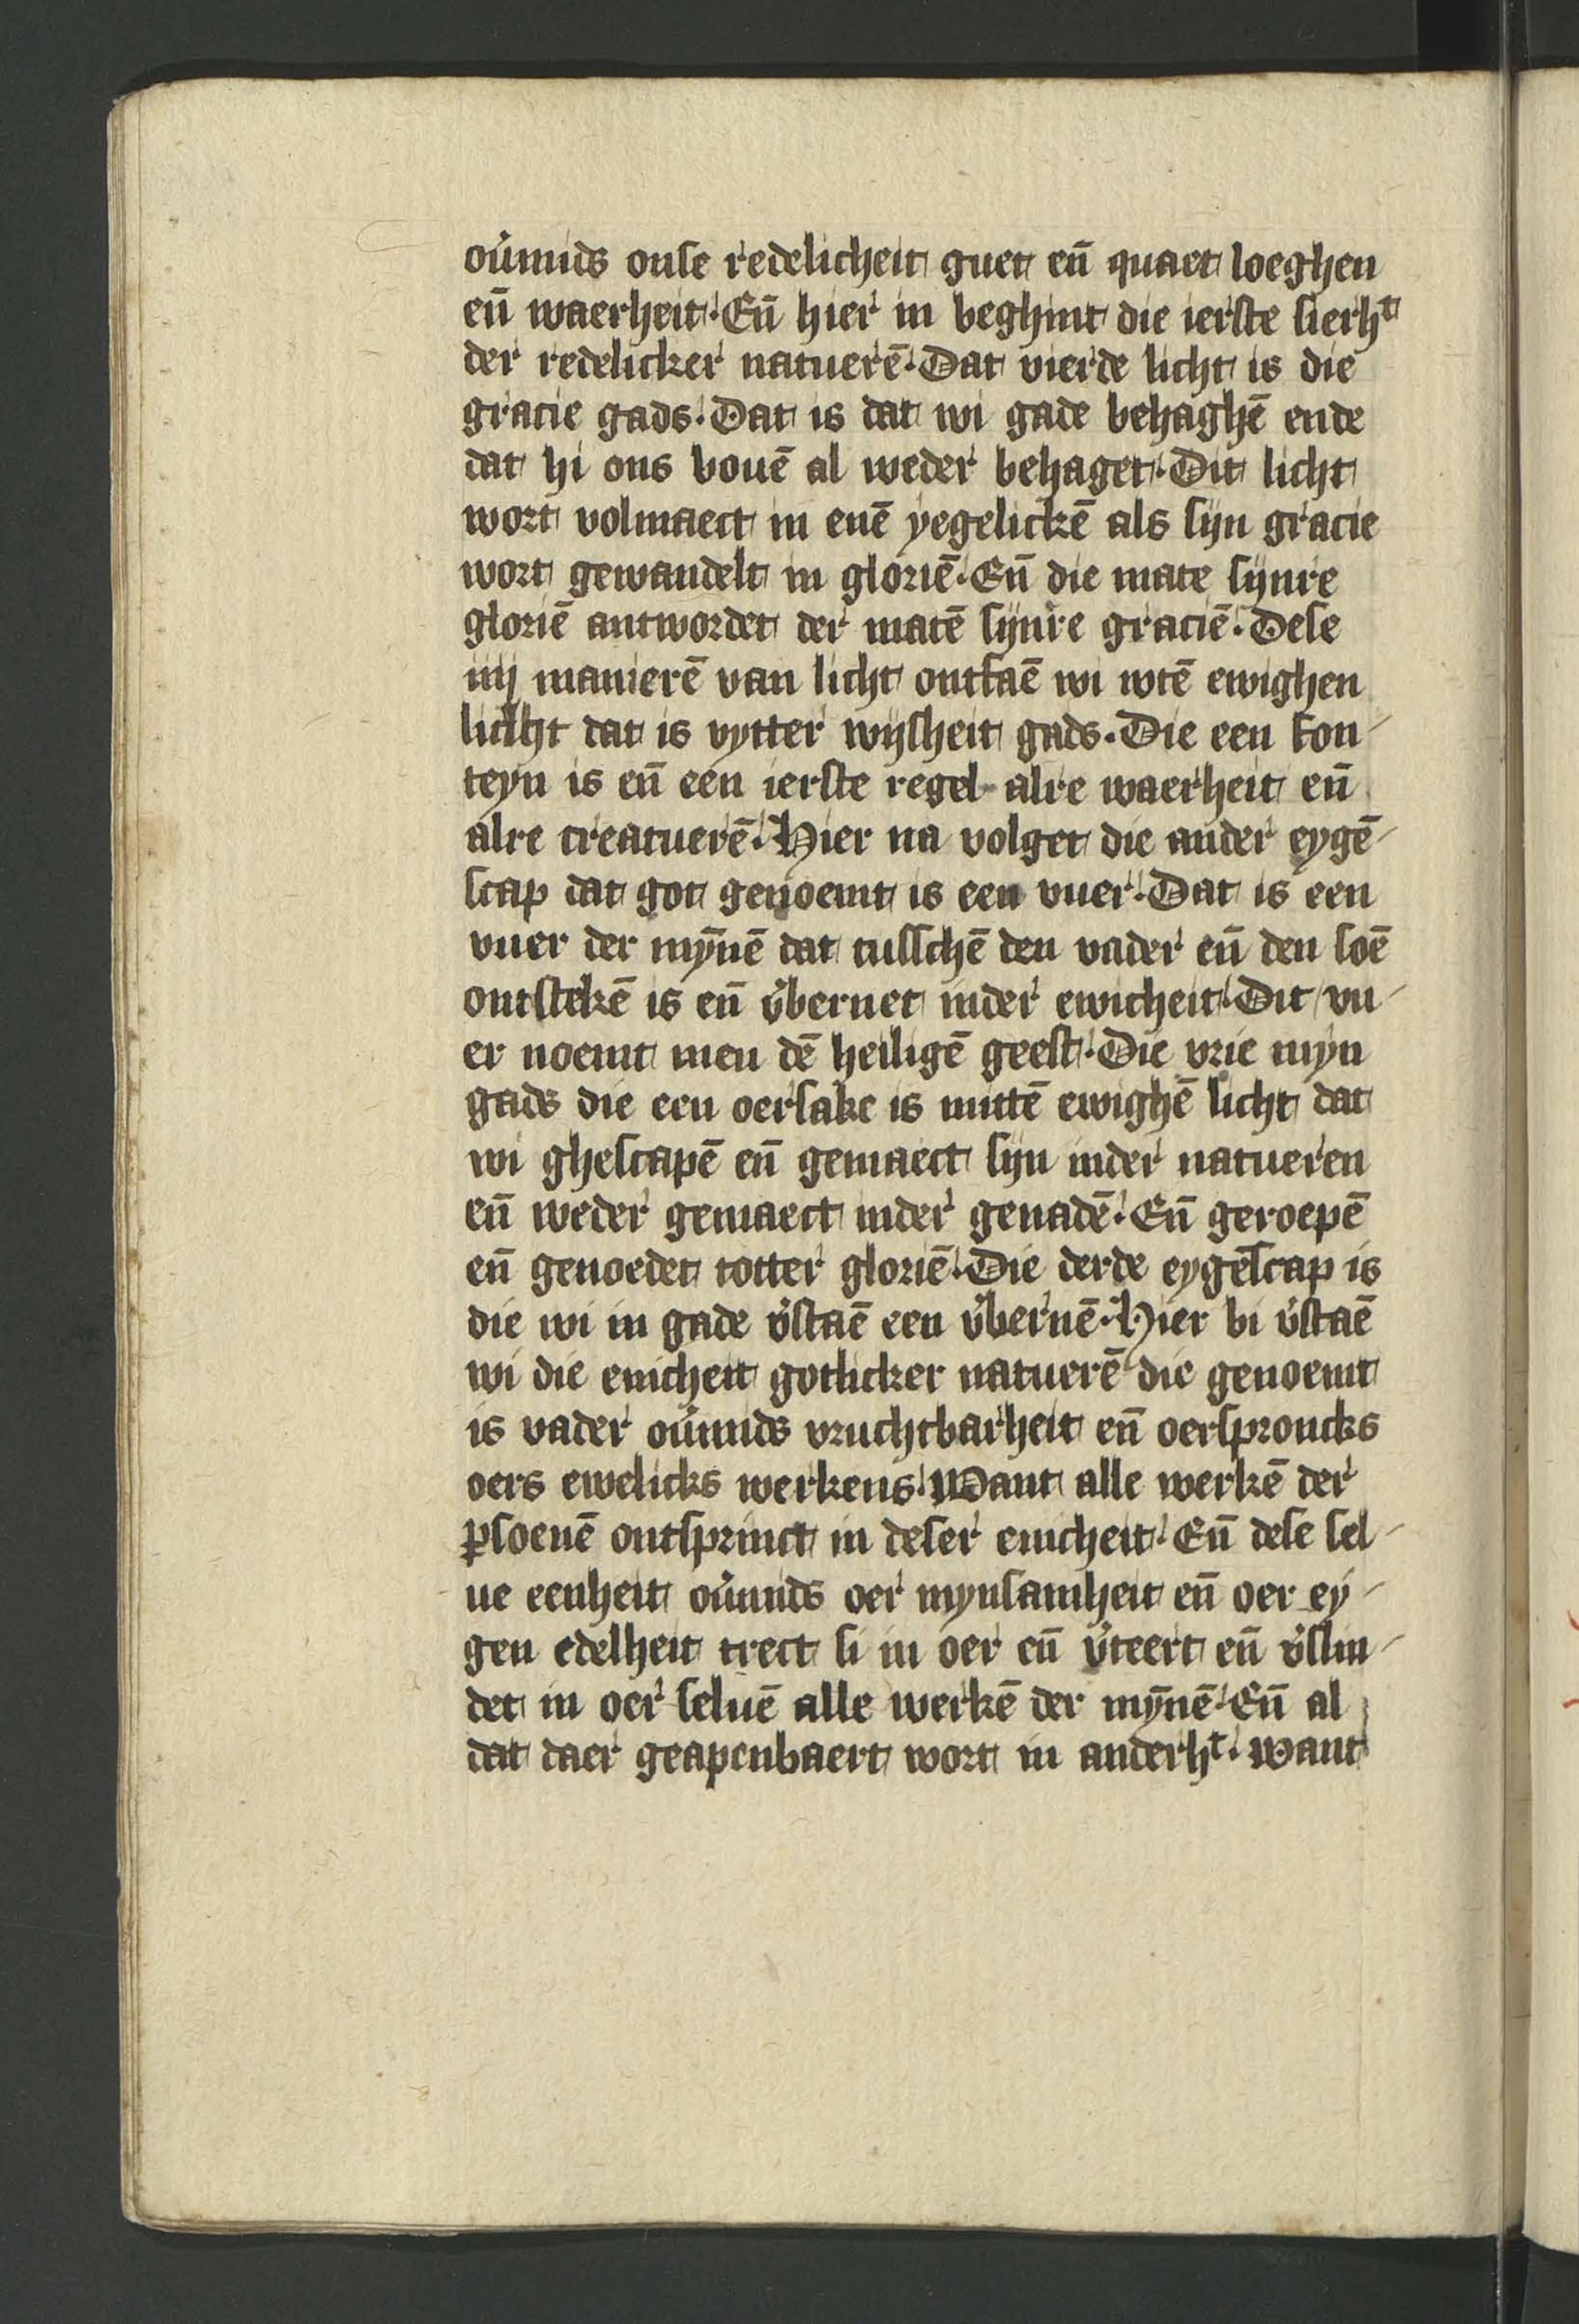 ou͛mids onse redelicheit guet en̄ quaet loeghen
en̄ waerheit. En̄ hier in beghint die ierste sierhᵗ
der redelicker natuerē. Dat vierde licht is die
gracie gads. Dat is dat wi gade behaghē ende
dat hi ons bouē al weder behaget. Dit licht
wort volmaect in enē yegelickē als sijn gracie
wort gewandelt in gloriē. En̄ die mate sijnre
gloriē antwordet der matē sijnre graciē. Dese
iiij manierē van licht ontfaē wi wtē ewighen
licht dat is vytter wijsheit gads. Die een fon-
teyn is en̄ een ierste regel alre waerheit en̄
alre creatuerē. Hier na volget die ander eygē-
scap dat got genoemt is een vuer. Dat is een
vuer der mȳnē dat tusschē den vader en̄ den soē
ontstekē is en̄ v͛bernet inder ewicheit. Dit vu-
er noemt men dē heiligē geest. Die vrie myn
gads die een oersake is mittē ewighē licht dat
wi ghescapē en̄ gemaect sijn inder natueren
en̄ weder gemaect inder genadē. En̄ geroepē
en̄ genoedet totter gloriē. Die derde eygēscap is
die wi in gade v͛staē een v͛bernē. Hier bi v͛staē
wi die enicheit gotlicker natuerē die genoemt
is vader ou͛mids vruchtbarheit en̄ oersproncks
oers ewelicks werkens. Want alle werkē der
ꝑsoenē ontsprinct in deser enicheit. En̄ dese sel-
ue eenheit ou͛mids oer mynsamheit en̄ oer ey-
gen edelheit trect si in oer en̄ v͛teert en̄ v͛slin-
det in oer seluē alle werkē der mȳnē. En̄ al
dat daer geapenbaert wort in anderhᵗ. want